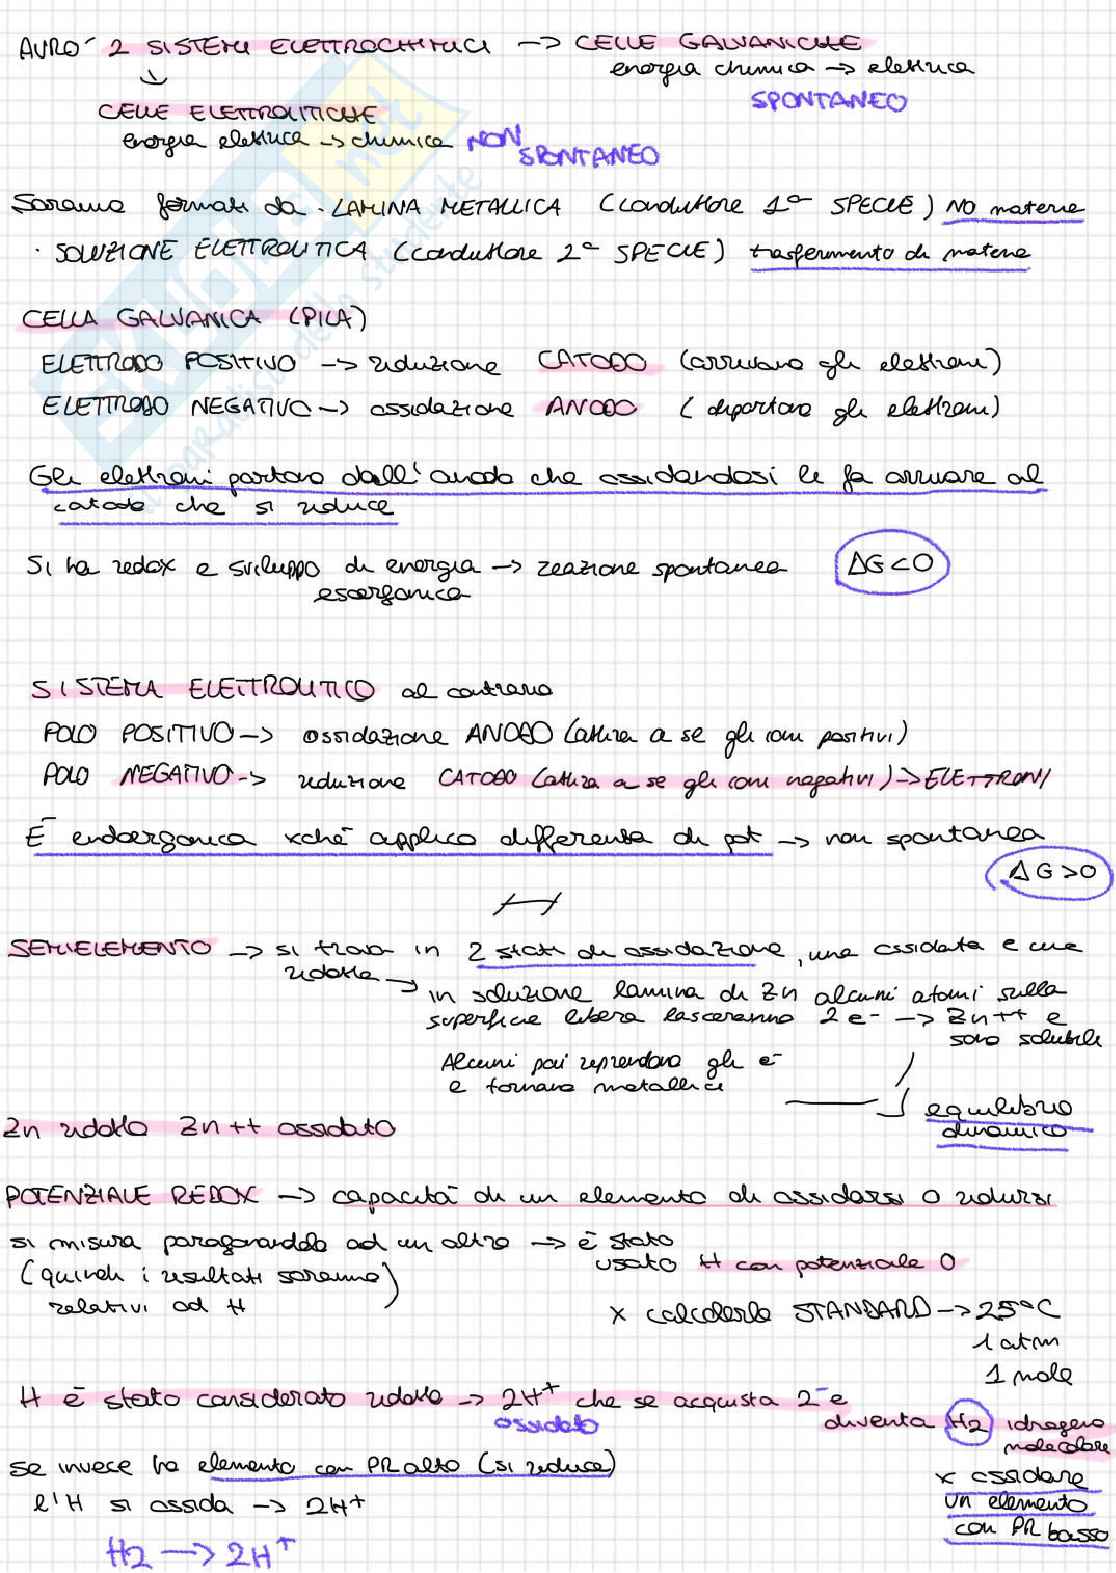 AVRO' 2 SISTEMI ELETTROCHIMICI -> CELLE GALVANICHE
energia chimica -> elettrica
SPONTANEO
CELLE ELETTROLITICHE
energia elettrica -> chimica NON SPONTANEO
Saranno formati da · LAMINA METALLICA (conduttore 1ª SPECIE) NO materia
· SOLUZIONE ELETTROLITICA (conduttore 2ª SPECIE) trasferimento di materia
CELLA GALVANICA (PILA)
ELETTRODO POSITIVO -> riduzione CATODO (arrivano gli elettroni)
ELETTRODO NEGATIVO -> ossidazione ANODO (ripartono gli elettroni)
Gli elettroni partono dall'anodo che ossidandosi le fa arrivare al
catodo che si riduce
Si ha redox e sviluppo di energia -> reazione spontanea ΔG<0
esoergonica
SISTEMA ELETTROLITICO al contrario
POLO POSITIVO -> ossidazione ANODO (attira a se gli ioni positivi)
POLO NEGATIVO -> riduzione CATODO (attira a se gli ioni negativi) -> ELETTRONI
È endoergonica xchè applico differenza di pot -> non spontanea
ΔG>0
SEMIELEMENTO -> si trova in 2 stati di ossidazione, una ossidata e una
ridotta -> in soluzione lamina di Zn alcuni atomi sulla
superficie libera lasceranno 2 e- -> Zn++ e
sono solubili
Alcuni poi riprendono gli e-
e tornano metallici
equilibrio
dinamico
Zn ridotto Zn++ ossidato
POTENZIALE REDOX -> capacità di un elemento di ossidarsi o ridursi
si misura paragonandolo ad un altro -> è stato
usato H con potenziale 0
(quindi i risultati saranno)
relativi ad H
x calcolarlo STANDARD -> 25°C
1 atm
1 mole
H è stato considerato ridotto -> 2H+ che se acquista 2-e
ossidato
diventa H2 idrogeno
molecolare
se invece ho elemento con PR alto (si riduce)
l'H si ossida -> 2H+
x ossidare
un elemento
con PR basso
H2 -> 2H+